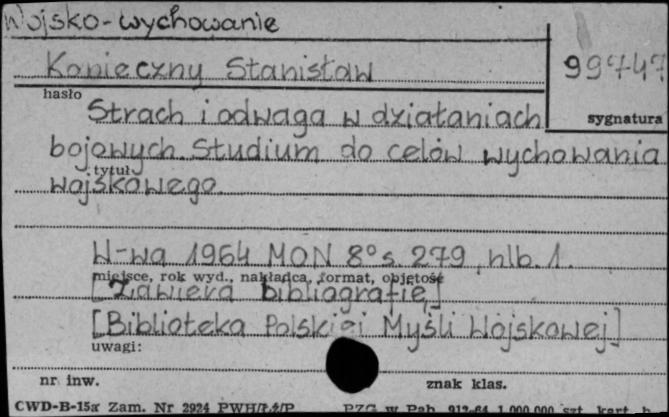 Wojsko-wychowanie
Konieczny Stanisław
99747
hasło
sygnatura
Strach i odwaga w działaniach
bojowych. Studium do celów wychowania
tytuł
wojskowego.
W-wa 1964 MON 8° s. 279, nlb. 1.
miejsce, rok wyd., nakładca, format, objętość
[Zawiera bibliografię]
[Biblioteka Polskiej Myśli Wojskowej]
uwagi:
nr inw.
znak klas.
CWD-B-15a Zam. Nr 2924 PZG w Pab. 1.000.000 szt. kart.